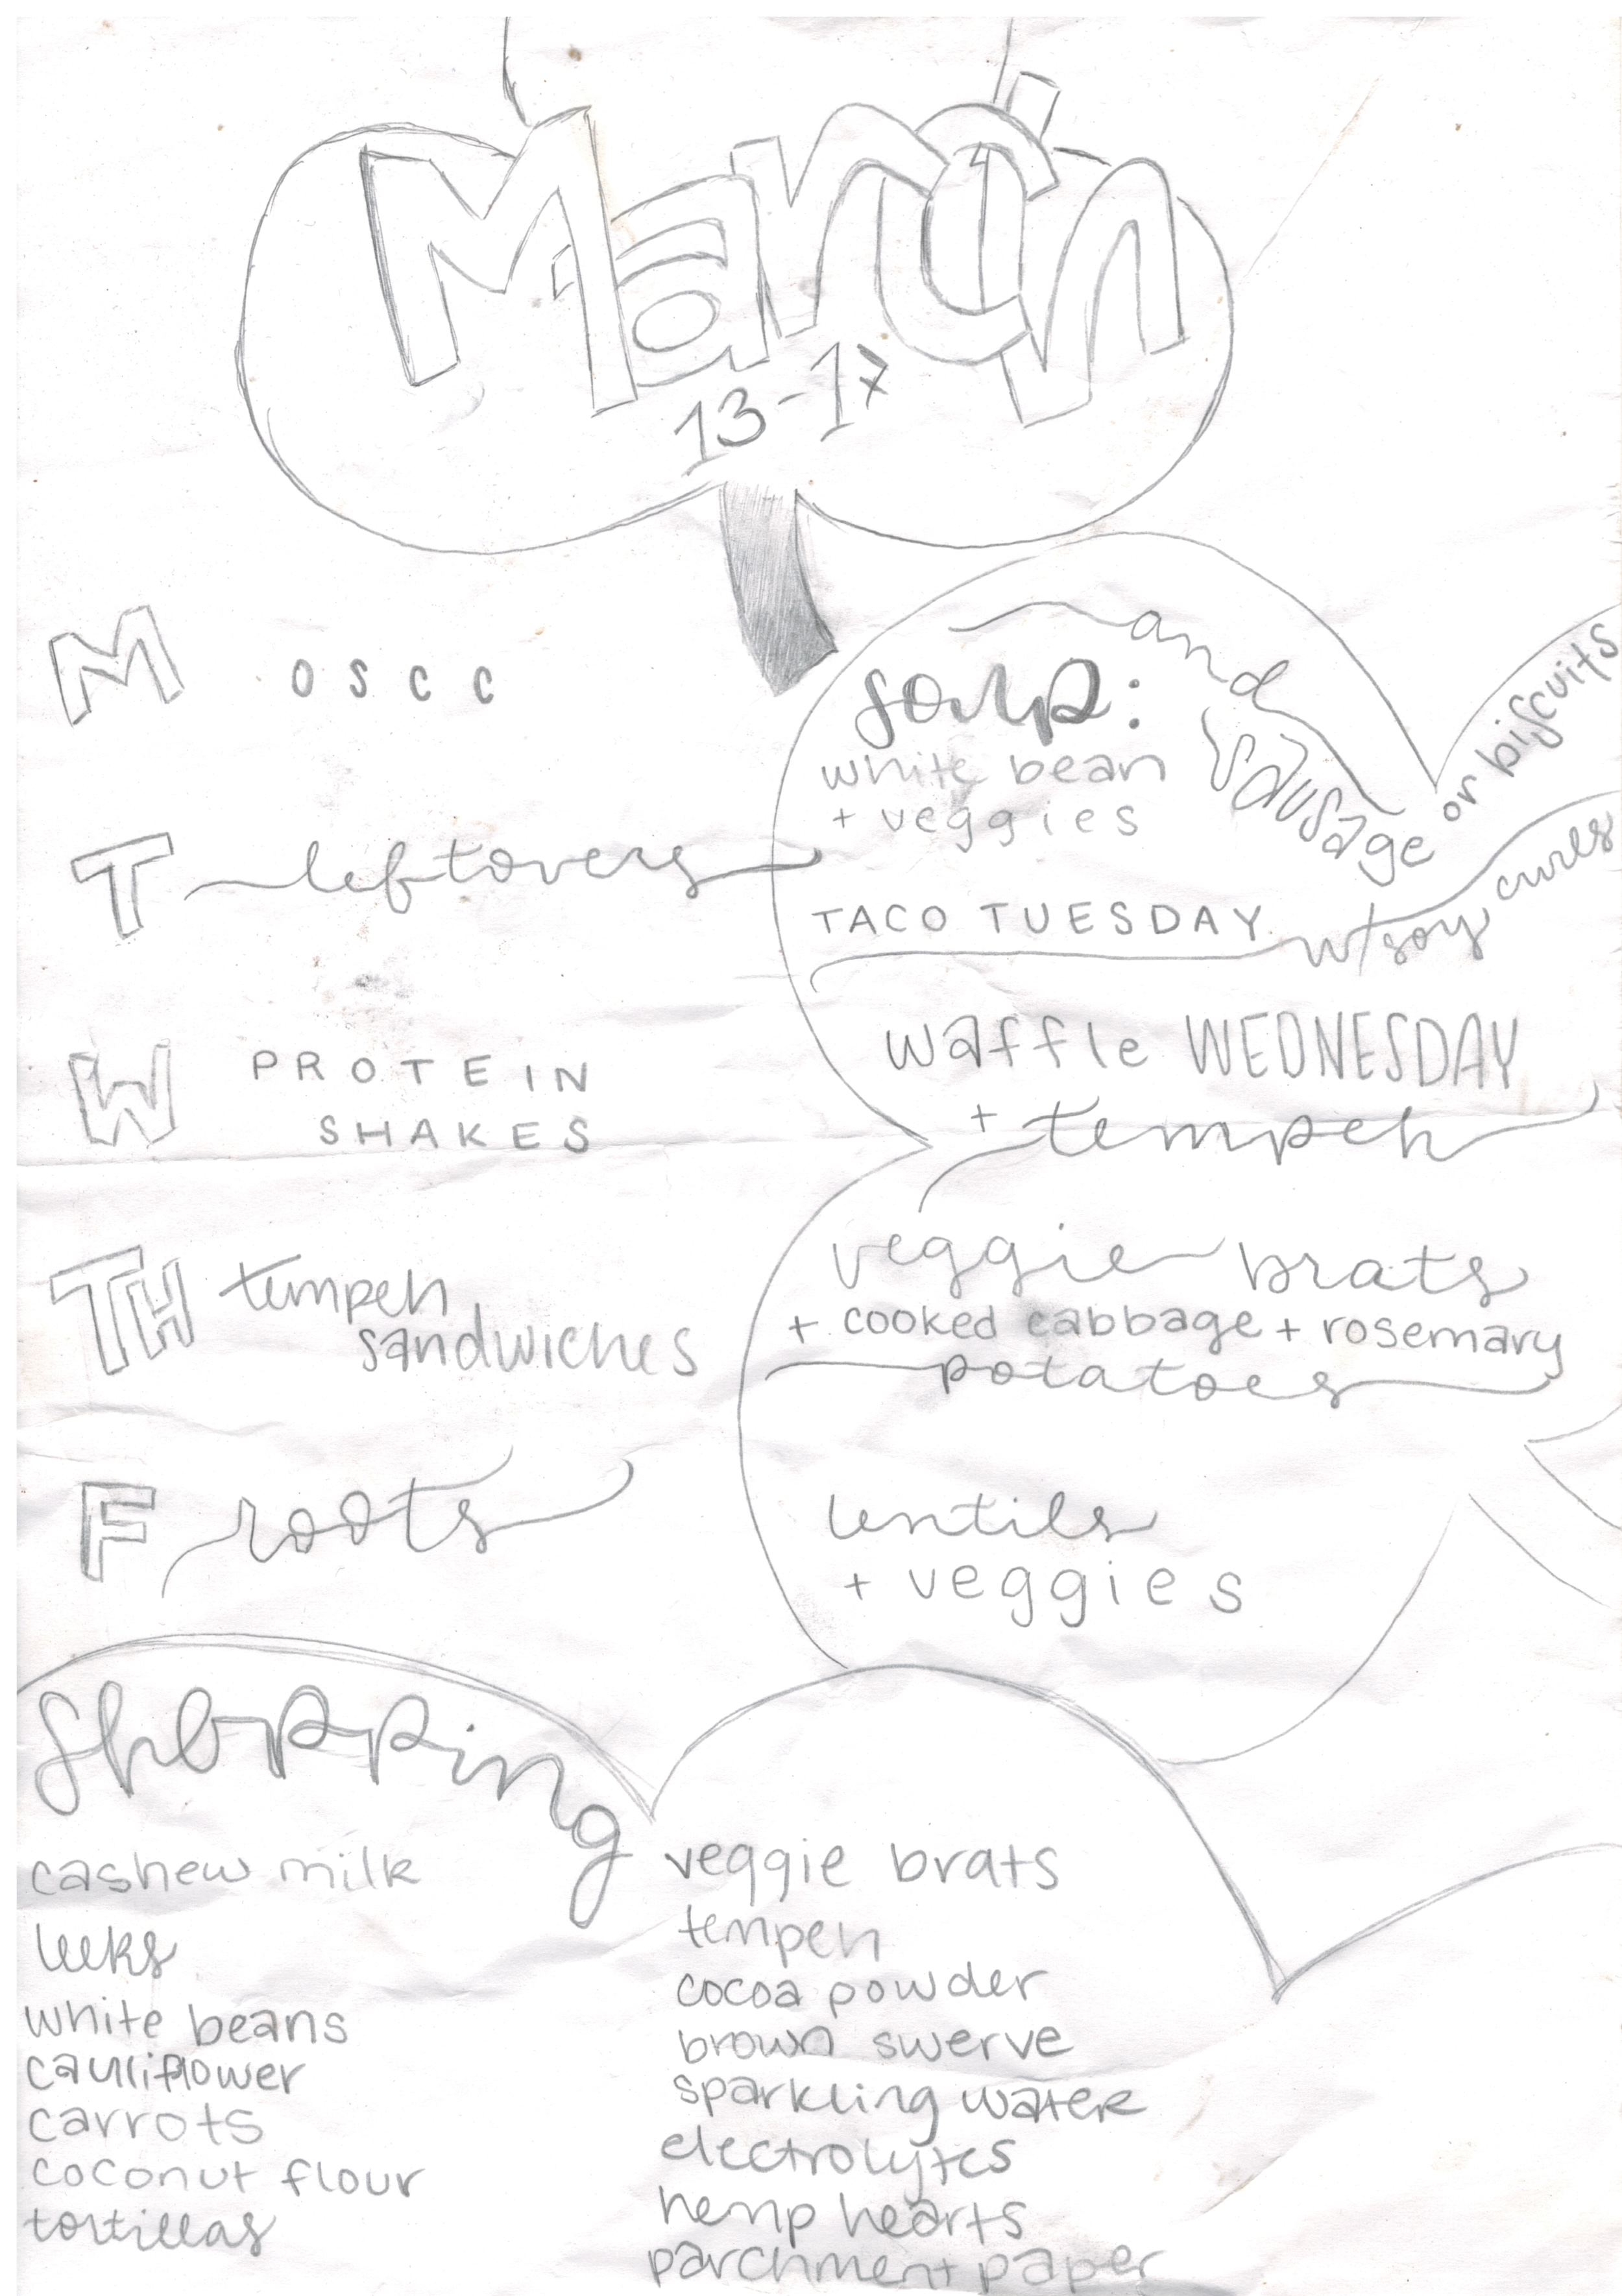 March
13-17
M O S C C
soup: and sausage or biscuits
white bean
+ veggies
T leftovers
TACO TUESDAY w/soy curls
W PROTEIN
SHAKES
waffle WEDNESDAY
+ tempeh
TH tempeh
sandwiches
veggie brats
+ cooked cabbage + rosemary
potatoes
F roots
lentils
+ veggies
Shopping
cashew milk
leeks
white beans
cauliflower
carrots
coconut flour
tortillas
veggie brats
tempeh
cocoa powder
brown swerve
sparkling water
electrolytes
hemp hearts
parchment paper